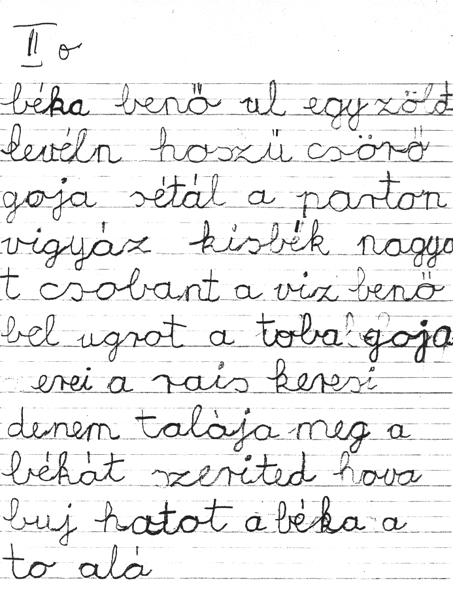 II o
béka benő ul egy zöld
levéln hoszű csörő
goja sétál a parton
vigyáz kisbék nagyo
t csobant a viz benő
bel ugrot a toba goja
erei a rais keresi
denem talàja meg a
békát szerited hova
buj hatot a béka a
to alá